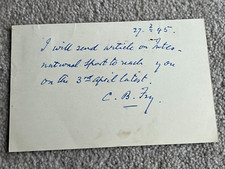 27. 3/4 45.
I will send article on Inter-
national Sport to reach you
on the 3rd April latest.
C. B. Fry